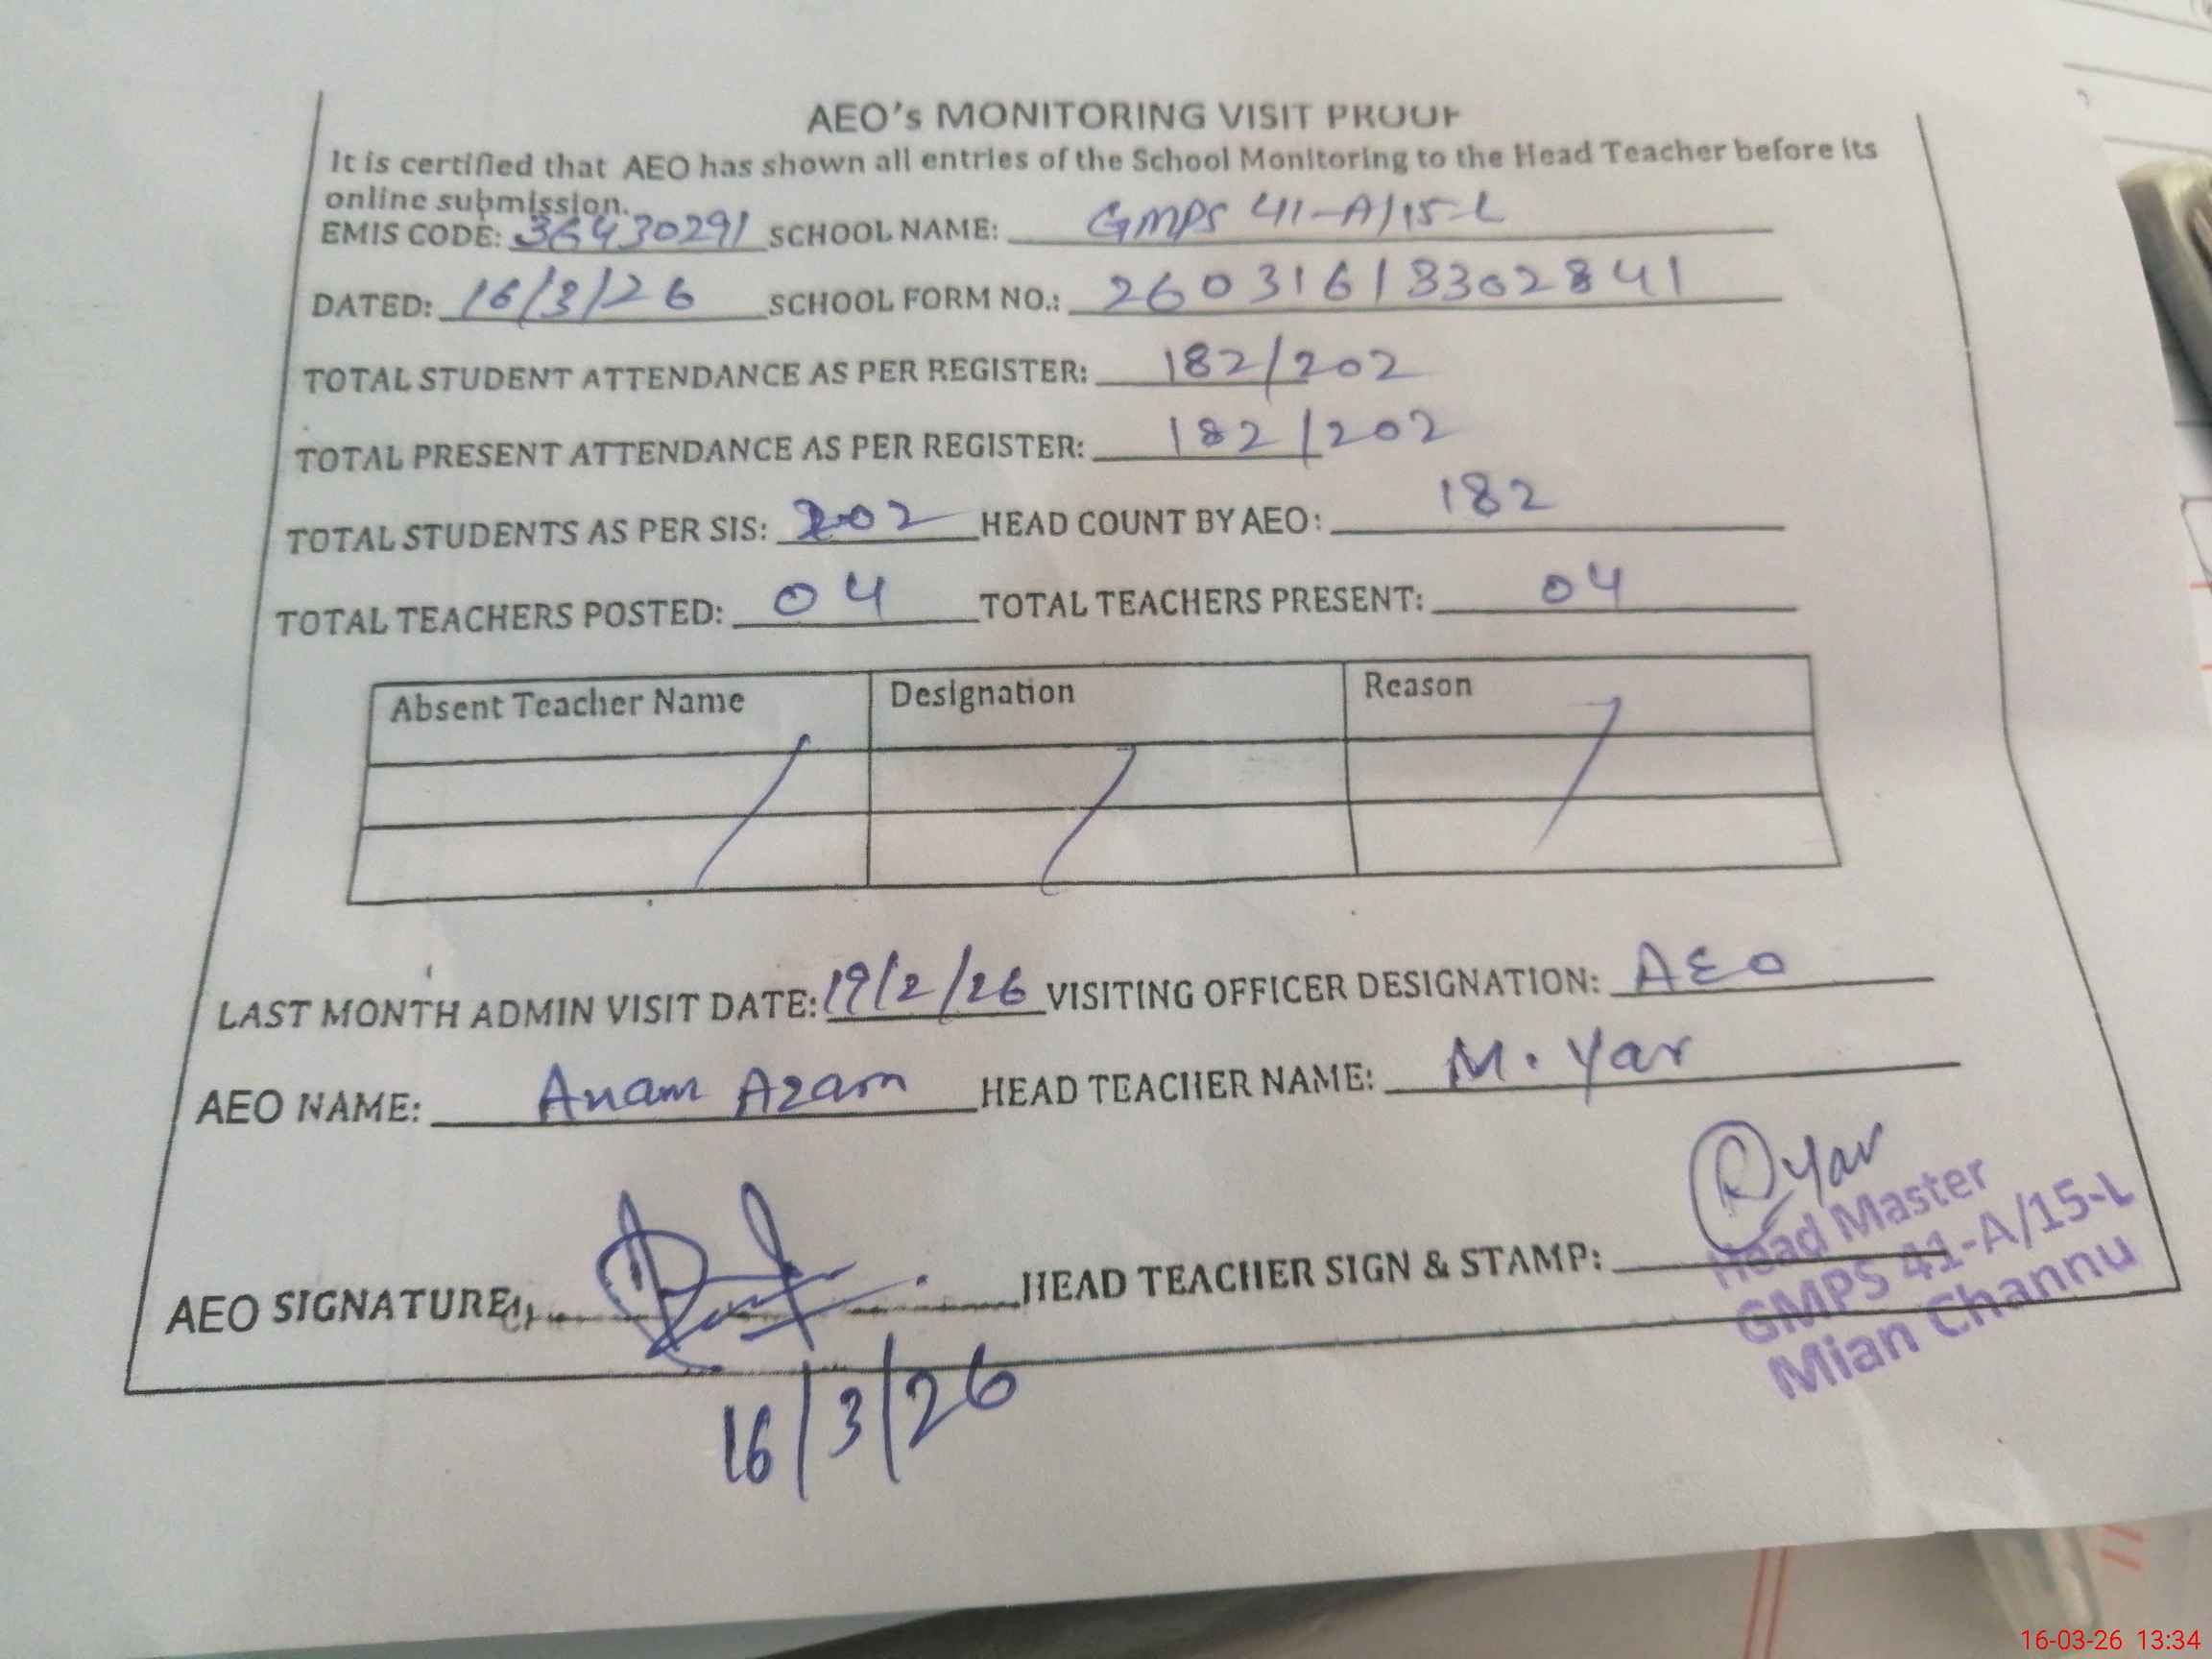 AEO's MONITORING VISIT PROOF
It is certified that AEO has shown all entries of the School Monitoring to the Head Teacher before its
online submission.
EMIS CODE: 36430291 SCHOOL NAME: GMPS 41-A/15-L
DATED: 16/3/26 SCHOOL FORM NO.: 2603161333302841
TOTAL STUDENT ATTENDANCE AS PER REGISTER: 182/202
TOTAL PRESENT ATTENDANCE AS PER REGISTER: 182/202
TOTAL STUDENTS AS PER SIS: 202 HEAD COUNT BY AEO: 182
TOTAL TEACHERS POSTED: 04 TOTAL TEACHERS PRESENT: 04
Absent Teacher Name Designation Reason
LAST MONTH ADMIN VISIT DATE: 19/2/26 VISITING OFFICER DESIGNATION: AEO
AEO NAME: Anam Azam HEAD TEACHER NAME: M. Yar
AEO SIGNATURE: HEAD TEACHER SIGN & STAMP: Yar
Head Master
GMPS 41-A/15-L
Mian Channu
16/3/26
16-03-26 13:34